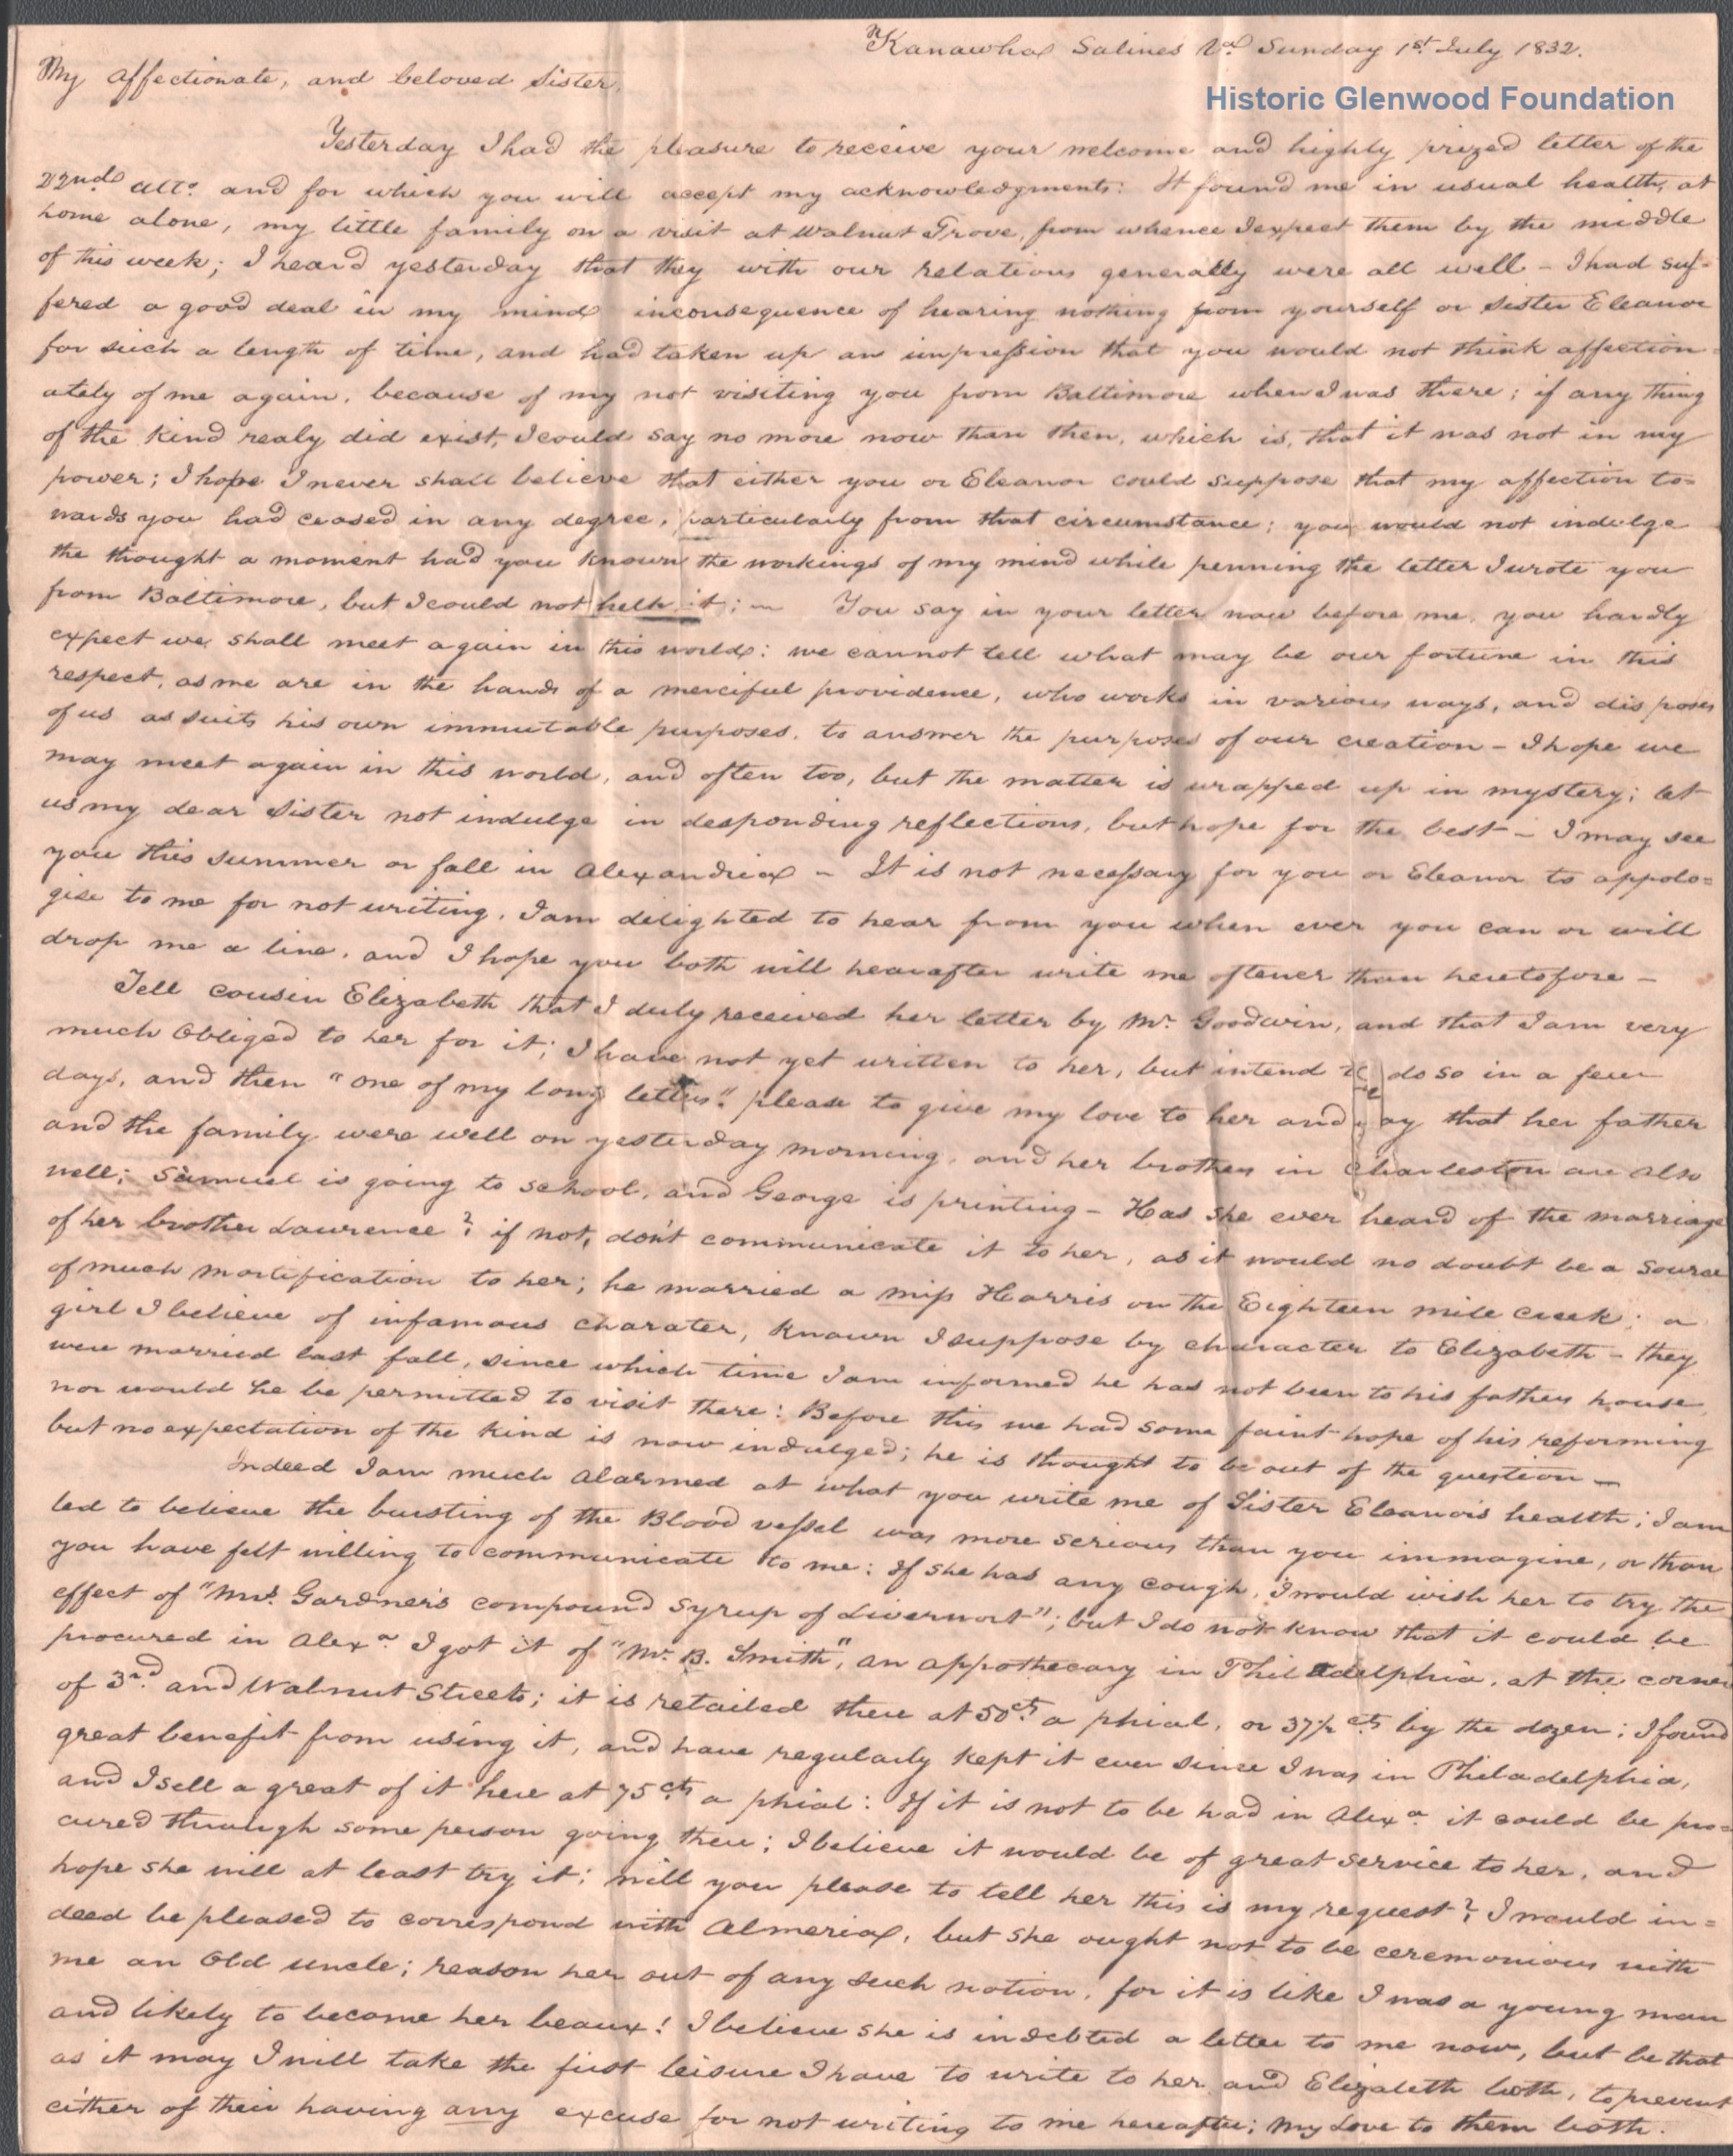 Kanawha Salines Va. Sunday 1st July 1832.
My affectionate, and beloved Sister,
Historic Glenwood Foundation
Yesterday I had the pleasure to receive your welcome and highly prized letter of the
22nd ulto. and for which you will accept my acknowledgments: It found me in usual health, at
home alone, my little family on a visit at Walnut Grove, from whence I expect them by the middle
of this week; I heard yesterday that they with our relations generally were all well – I had suf=
fered a good deal in my mind inconsequence of hearing nothing from yourself or Sister Eleanor
for such a length of time, and had taken up an impression that you would not think affection=
ately of me again, because of my not visiting you from Baltimore when I was there; if any thing
of the kind realy did exist, I could say no more now than then, which is, that it was not in my
power; I hope I never shall believe that either you or Eleanor could suppose that my affection to=
wards you had ceased in any degree, particularly from that circumstance; you would not indulge
the thought a moment had you known the workings of my mind while penning the letter I wrote you
from Baltimore, but I could not help it; – You say in your letter now before me, you hardly
expect we shall meet again in this world: we cannot tell what may be our fortune in this
respect, as we are in the hands of a merciful providence, who works in various ways, and disposes
of us as suits his own immutable purposes, to answer the purposes of our creation – I hope we
may meet again in this world, and often too, but the matter is wrapped up in mystery; let
us my dear Sister not indulge in desponding reflections, but hope for the best – I may see
you this summer or fall in Alexandria – It is not necessary for you or Eleanor to appolo=
gise to me for not writing, I am delighted to hear from you when ever you can or will
drop me a line, and I hope you both will hereafter write me oftener than heretofore –
Tell cousin Elizabeth that I duly received her letter by Mr. Goodwin, and that I am very
much obliged to her for it; I have not yet written to her, but intend to do so in a few
days, and then "one of my long letters". please to give my love to her and say that her father
and the family were well on yesterday morning, and her brothers in Charleston are also
well; Samuel is going to school, and George is printing – Has she ever heard of the marriage
of her brother Laurence? if not, don't communicate it to her, as it would no doubt be a source
of much mortification to her; he married a miss Harris on the Eighteen mile creek; a
girl I believe of infamous charater, known I suppose by character to Elizabeth – they
were married last fall, since which time I am informed he has not been to his fathers house,
nor would he be permitted to visit there: Before this we had some faint hope of his reforming
but no expectation of the kind is now indulged; he is thought to be out of the question –
Indeed I am much alarmed at what you write me of Sister Eleanors health; I am
led to believe the bursting of the Blood vessel was more serious than you immagine, or than
you have felt willing to communicate to me: If she has any cough, I would wish her to try the
effect of "Mrs. Gardner's compound syrup of Liverwort"; but I do not know that it could be
procured in Alexa. I got it of "Mr. B. Smith", an appothecary in Philadelphia, at the corner
of 3rd. and Walnut Streets; it is retailed there at 50cts a phial, or 37½ cts by the dozen; I found
great benefit from using it, and have regularly kept it ever since I was in Philadelphia,
and I sell a great of it here at 75cts a phial: If it is not to be had in Alexa. it could be pro=
cured through some person going there; I believe it would be of great service to her, and
hope she will at least try it; will you please to tell her this is my request? I would in=
deed be pleased to correspond with Almeria, but she ought not to be ceremonious with
me an old uncle; reason her out of any such notion, for it is like I was a young man
and likely to become her beaux! I believe she is indebted a letter to me now, but be that
as it may I will take the first leisure I have to write to her and Elizabeth both, to prevent
either of their having any excuse for not writing to me hereafter; My Love to them both.